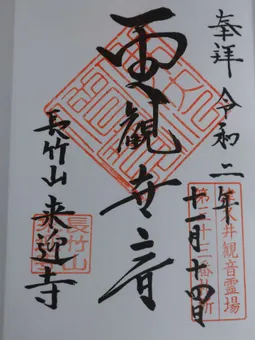 奉拝 令和二年十一月十四日
井観音霊場
第二十三番札所
觀世音
長竹山 来迎寺
長竹山